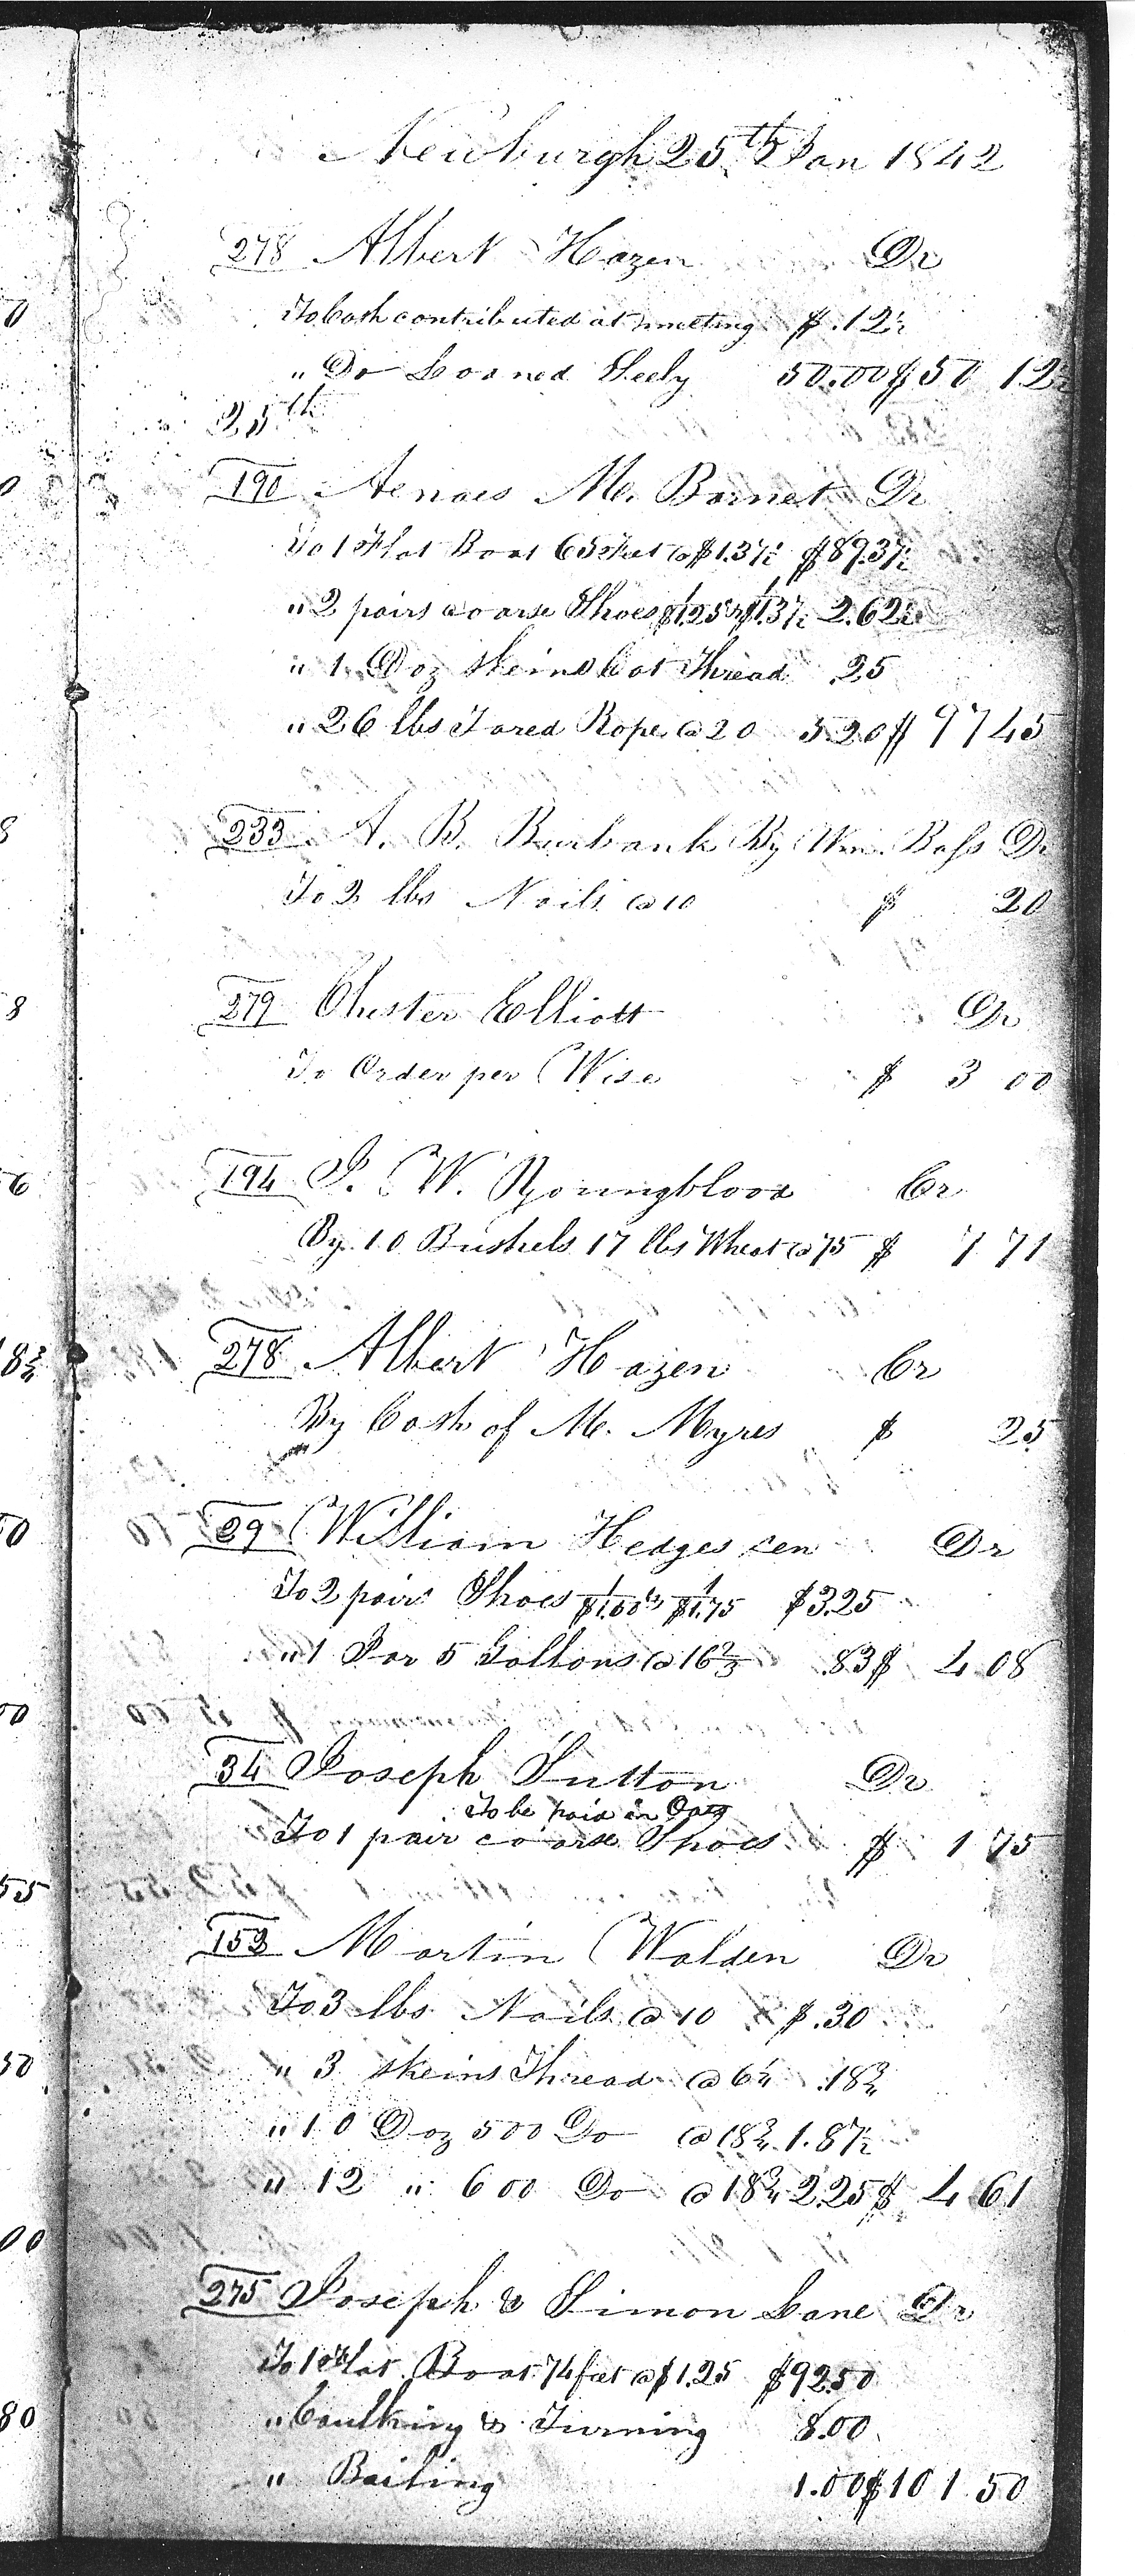 Newburgh 25th Jan 1842
278 Albert Hazen Dr
To Cash contributed at meeting $ .12½
" Do Loaned Seely 50.00 $50 12½
25th
190 Aenaes Mc. Barnet Dr
To 1 Flat Boat 65 Feet @ $1.37½ $89.37½
" 2 pairs coarse Shoes 1/$1.25 & 1/$1.37½ 2.62½
" 1 Doz skeins Cot Thread .25
" 26 lbs Tared Rope @ 20 5.20 $ 97 45
233 A. B. Burbank By Wm. Bass Dr
To 2 lbs Nails @ 10 $ 20
279 Chester Elliott Dr
To Order per Wise $ 3 00
194 S. W. Youngblood Cr
By 10 Bushels 17 lbs Wheat @ 75 $ 7 71
278 Albert Hazen Cr
By Cash of M. Myres $ 25
89 William Hedges sen Dr
To 2 pairs Shoes 1/$1.50 & 1/$1.75 $3.25
" 1 Jar 5 Gallons @ 16⅔ .83 $ 4 08
34 Joseph Sutton Dr
To be paid in Oats
To 1 pair coarse Shoes $ 1 75
153 Martin Walden Dr
To 3 lbs Nails @ 10 $ .30
" 3 skeins Thread @ 6¼ .18¾
" 10 Doz 500 Do @ 18¾ 1.87½
" 12 " 600 Do @ 18¾ 2.25 $ 4 61
275 Joseph & Simon Lane Dr
To 1 Flat Boat 74 feet @ $1.25 $92.50
" Caulking & Turning 8.00
" Bailing 1.00 $101 50
0
0
8
8
6
18¾
50
00
55
50
00
80